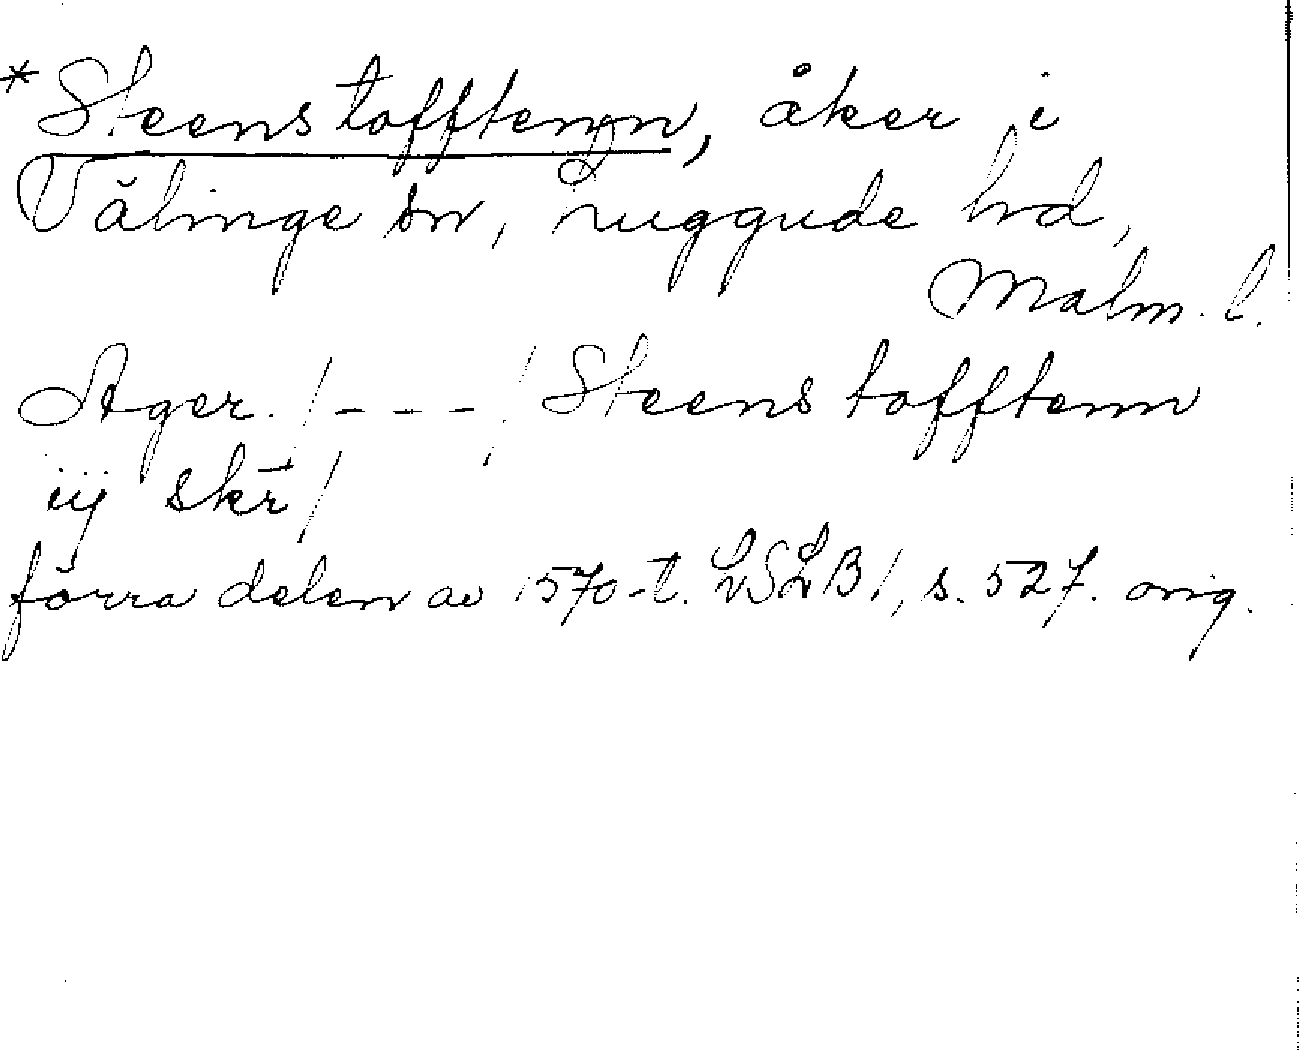 *Steens tofftenn, åker i
Välinge sn, Luggude hd,
Malm. l.
Ager. /---/ Steens tofftenn
iij skr̄ /
förra delen av 1570-t. LSLB 1, s. 527. orig.